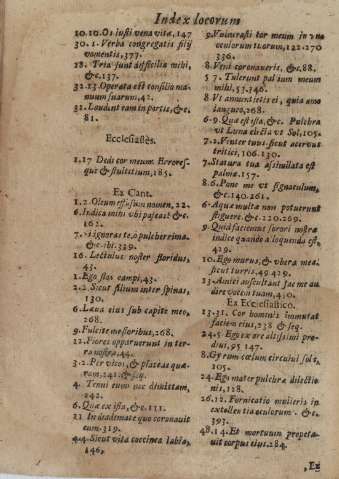 Index locorum
10.10. Os iusti vena vitæ, 147
30. 1. Verba congregatis filij
vomentis, 377.
28. Tria sunt difficilia mihi,
&c. 137.
32.13. Operata est consilio ma-
nuum suarum, 42.
31. Laudent eam in portis, &c.
81.
Ecclesiastes.
1.17 Dedi cor meum. Errores-
que & stultitium, 185.
Ex Cant.
1.2. Oleum effusum nomen, 22.
6. Indica mihi vbi pascas? &c.
162.
7. Si ignoras te, o pulcherrima,
&c. ibi. 329.
16. Lectulus noster floridus,
43.
1. Ego flos campi, 43.
2.2. Sicut lilium inter spinas,
130.
6. Læua eius sub capite meo,
268.
9. Fulcite me floribus, 268.
12. Flores apparuerunt in ter-
ra nostra, 44.
3.2. Per vicos, & plateas quæ-
ram, 241. & seq.
4. Tenui eum nec dimittam,
242.
6. Quæ est ista, &c. 111.
11. In diademate quo coronauit
eum. 319.
4.4. Sicut vita coccinea labia,
146,
9. Vulnerasti cor meum in vno
oculorum tuorum, 122. 270
336.
8. Veni coronaueris, &c. 88.
5 7. Tulerunt palium meum
mihi, 57. 346.
8. Vt annuntietis ei, quia amo
langueo, 268.
6-9. Quæ est ista, &c. Pulchra
vt Luna electa vt Sol, 105.
7.2. Venter tuus sicut aceruus
tritici, 106. 130.
7. Statura tua assimilata est
palmæ, 157.
8.6. Pone me vt signaculum,
&c. 140. 261.
6. Aquæ multæ non potuerunt
stiguere, &c. 220. 269.
9. Quid faciemus sorori nostræ
indice quando alloquenda est,
429.
10. Ego murus, & vbera mea
sicut turris, 49. 429.
23. Amici auscultant fac me au
dire vocem tuam, 410.
Ex Ecclesiastico.
13.31. Cor hominis immutat
faciem eius, 238 & seq.
24.5 Ego ex ore altissimi pro-
diui, 95 147.
8. Gyrum cœlum circuiui sola,
105.
24. Ego mater pulchræ dilectio
nis, 128.
26.12. Fornicatio mulieris in
extollentia oculorum &c.
393.
48.14. Et mortuum propeta-
uit corpus eius. 284.
,Ex